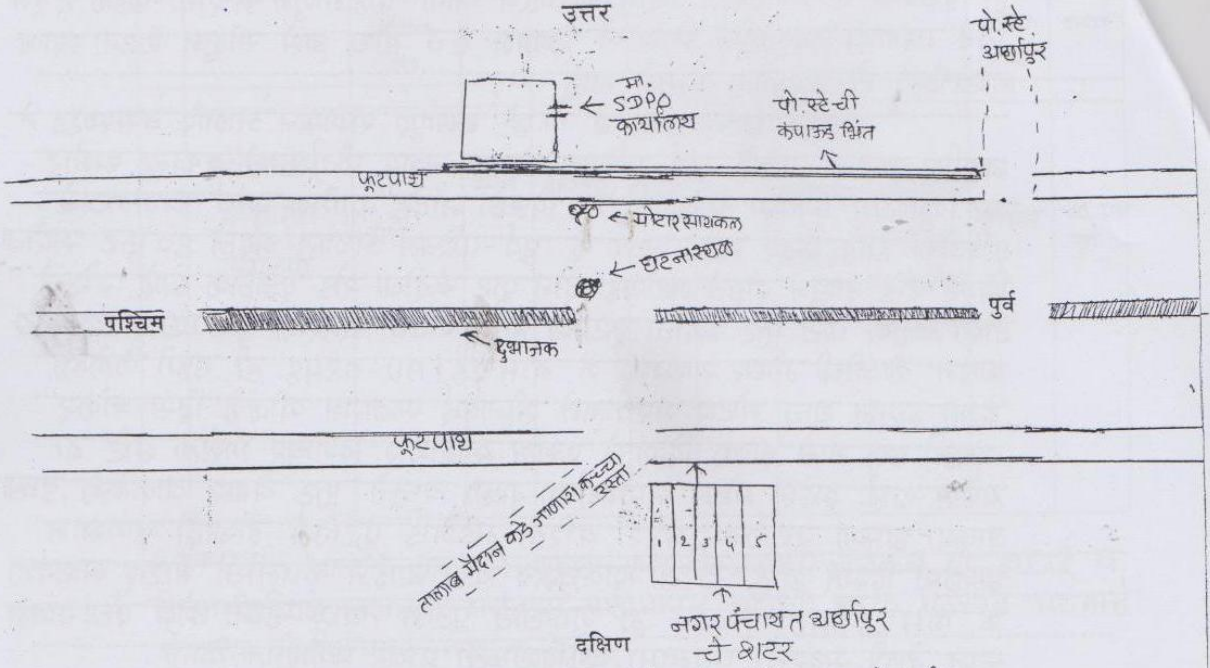 उत्तर
पो.स्टे
अर्धापुर
मा.
SDPO
कार्यालय
पो स्टे ची
कंपाऊड भिंत
फूटपाथ
मोटार सायकल
घटनास्थळ
पश्चिम
पुर्व
दुभाजक
फूटपाथ
तालाब मैदान कडे जाणारा कच्चा
रस्ता
1 2 3 4 5
नगर पंचायत अर्धापुर
चे शटर
दक्षिण